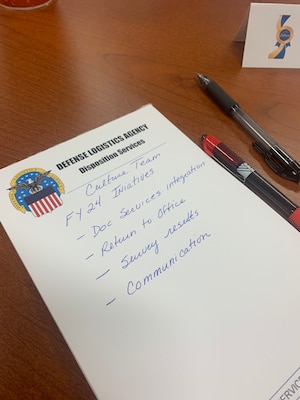 DEFENSE LOGISTICS AGENCY
Disposition Services
Culture Team
FY 24 Iniatives
- Doc Services integration
- Return to Office
- Survey results
- Communication